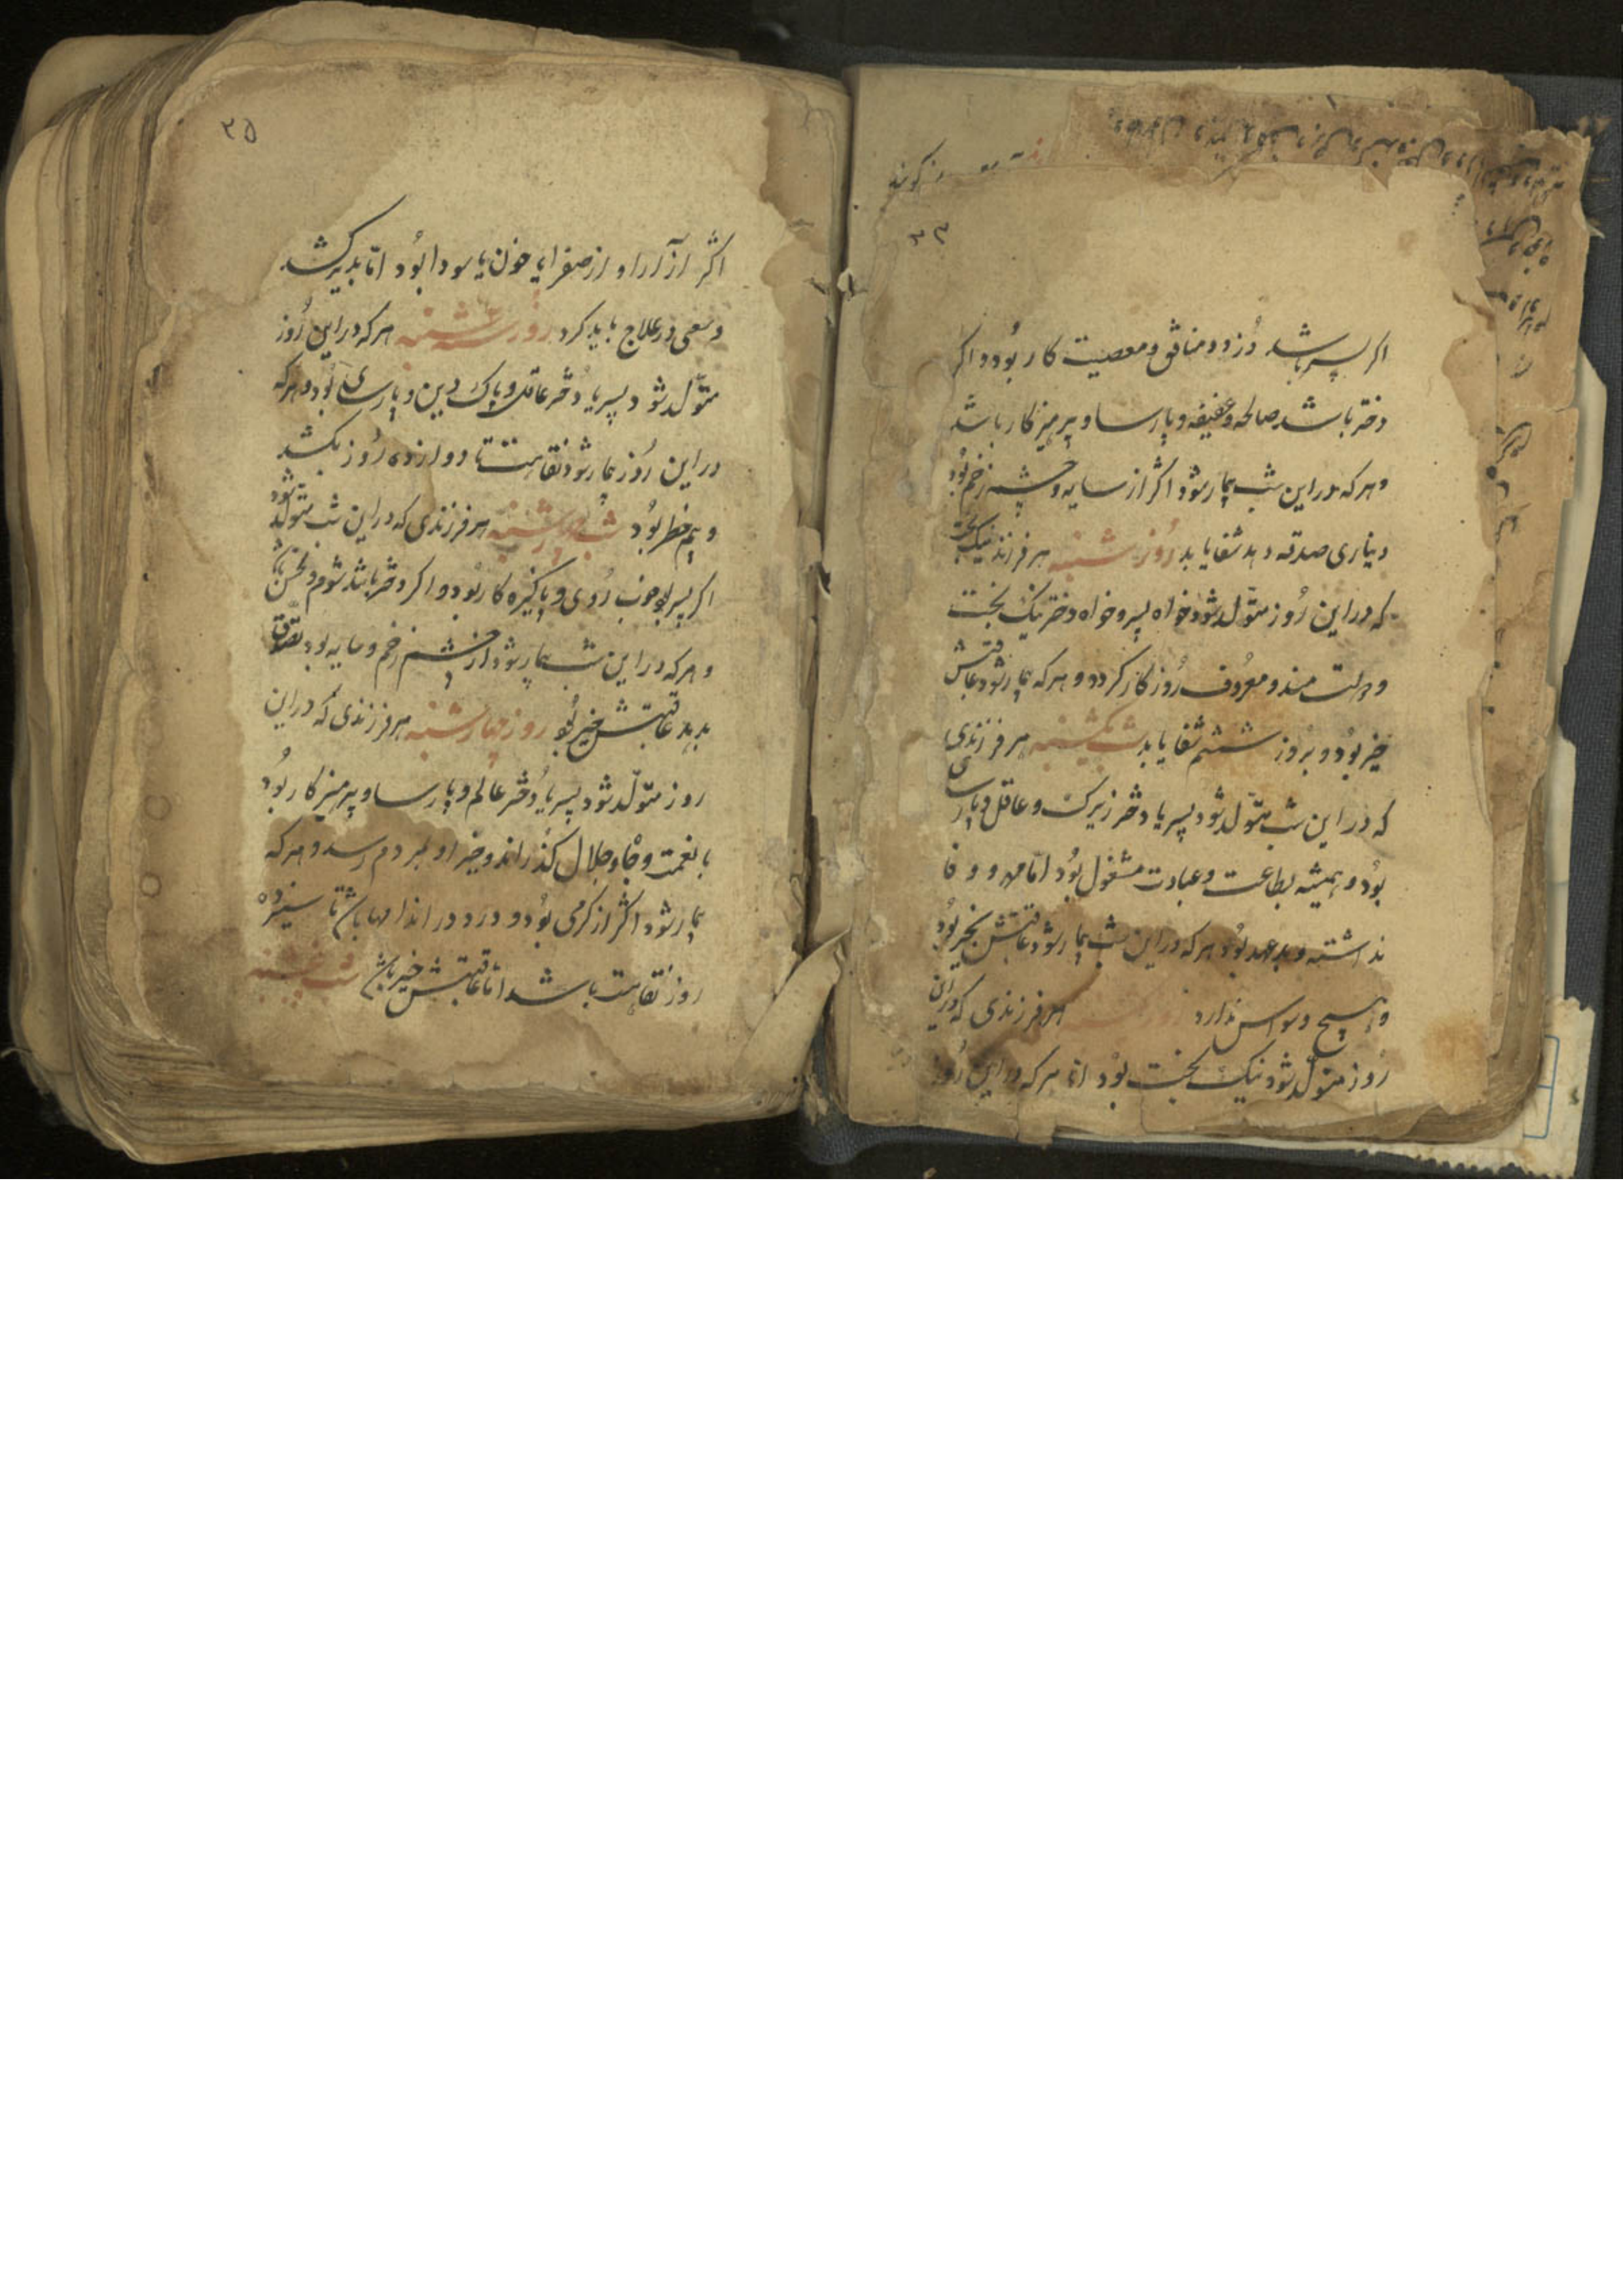 ۳۳
اکر پسر باشد دُزد و منافق و معصیت کار بُود و اکر
دختر باشد صالحه و عفیفه و پارسا و پرهیز کار باشد
و هر که در این شب بیمار شود اکثر از سایه و چشم زخم بُود
دیناری صدقه دهد شفا یابد رُوز شنبه هر فرزند نیک بخت
که در این رُوز متولّد شود خواه پسر و خواه دختر نیک بخت
و دولت مند و معرُوف رُوزکار کردد و هر که بیمار شود عاقبتش
خیر بُود و برُوز ششم شفا یابد شب یکشنبه هر فرزندی
که در این شب متولّد شود پسر یا دختر زیرک و عاقل و پارسا
بُود و همیشه بطاعت و عبادت مشغول بُود امّا مهر و وفا
نداشته و بد عهد بُود هر که در این شب بیمار شود عاقبتش بخیر بُود
و هیچ وسواس ندارد هر فرزندی که در این
رُوز متولّد شود نیک بخت بُود امّا هر که در این رُوز
۲۵
اکثر از آزار او از صفرا یا خون یا سودا بُود امّا بدیر کشد
و سعی در علاج باید کرد رُوز سه شنبه هر که در این رُوز
متولّد شود پسر یا دختر عاقل و پاک دین و پارسای بُود و هر که
در این رُوز بیمار شود نقاهت تا دوازده رُوز بکشد
و بیم خطر بُود شب چهارشنبه هر فرزندی که در این شب متولّد شود
اکر پسر بود خوب رُوی و پاکیزه کار بُود و اکر دختر باشد شوم و نحس باشد
و هر که در این شب بیمار شود از چشم زخم و سایه بود تصدّق
بدهد عاقبتش خیر بُود روز چهارشنبه هر فرزندی که در این
روز متولّد شود پسر یا دُختر عالم و پارسا و پرهیز کار بُود
با نعمت و جاه و جلال کذراند و خیر او بمردم رسد و هر که
بیمار شود اکثر از کرمی بُود و درد در اندامها باشد تا سیزده
روز نقاهت باشد امّا عاقبتش خیر باشد شب پنجشنبه